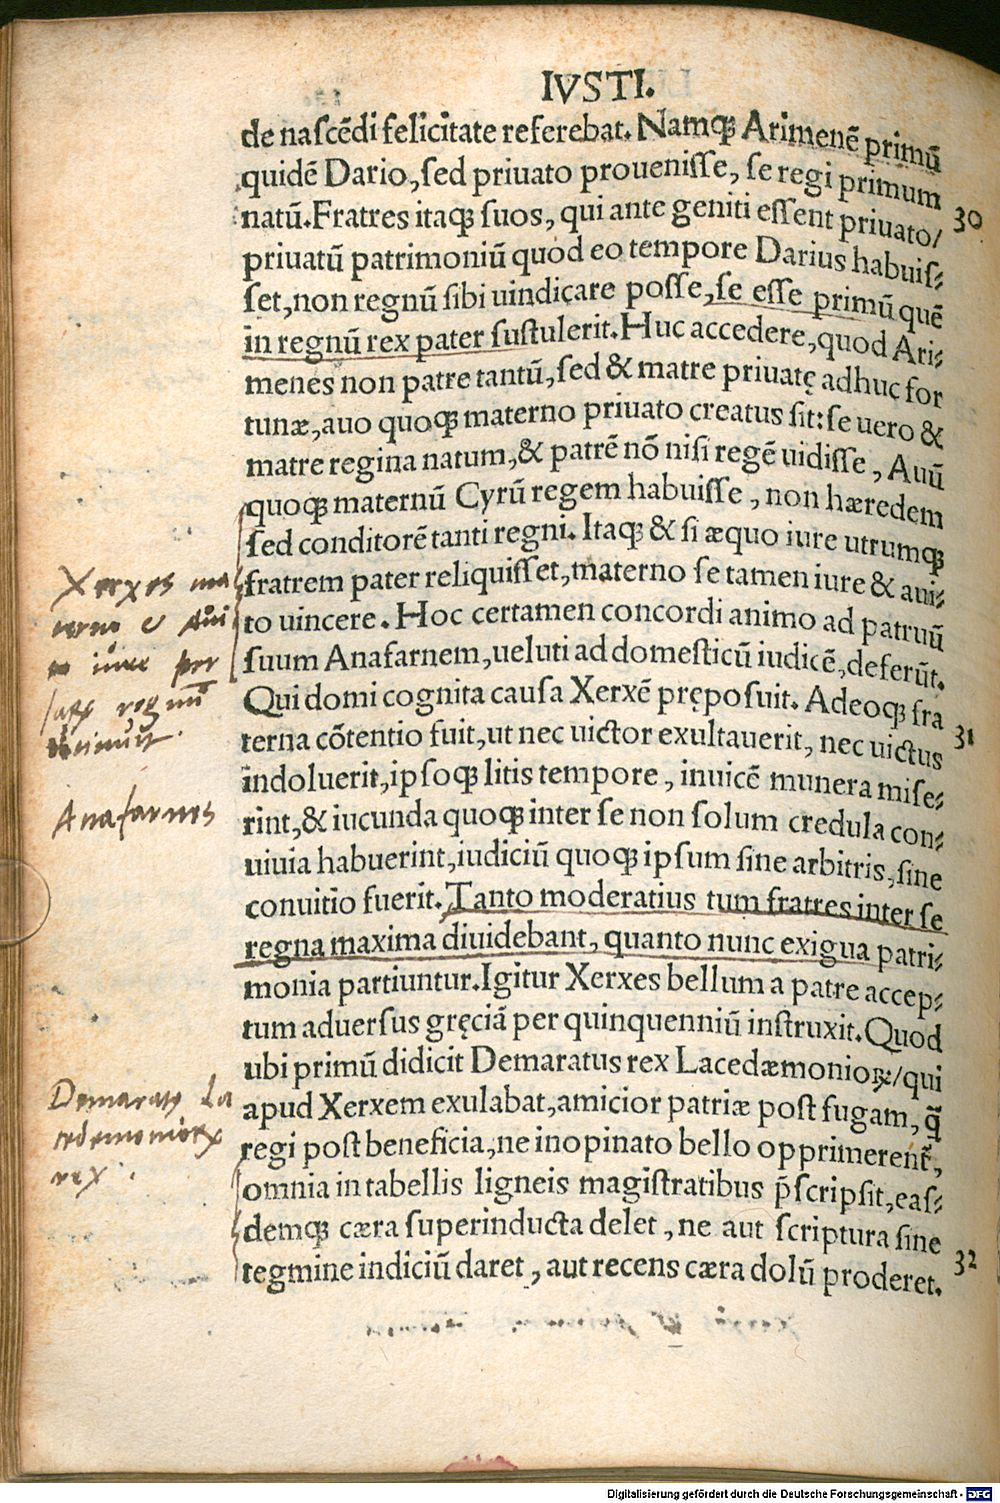 IVSTI.
de nascẽdi felicitate referebat. Namq; Arimenẽ primũ
quidẽ Dario, sed priuato prouenisse, se regi primum
natũ. Fratres itaq; suos, qui ante geniti essent priuato/
30
priuatũ patrimoniũ quod eo tempore Darius habuis⸗
set, non regnũ sibi uindicare posse, se esse primũ quẽ
in regnũ rex pater sustulerit. Huc accedere, quod Ari⸗
menes non patre tantũ, sed & matre priuatę adhuc for
tunæ, auo quoq; materno priuato creatus sit: se uero &
matre regina natum, & patrẽ nõ nisi regẽ uidisse, Auũ
quoq; maternũ Cyrũ regem habuisse, non hæredem
sed conditorẽ tanti regni. Itaq; & si æquo iure utrumq;
fratrem pater reliquisset, materno se tamen iure & aui⸗
to uincere. Hoc certamen concordi animo ad patruũ
suum Anafarnem, ueluti ad domesticũ iudicẽ, deferũt.
Qui domi cognita causa Xerxẽ pręposuit. Adeoq; fra
terna cõtentio fuit, ut nec uictor exultauerit, nec uictus
31
indoluerit, ipsoq; litis tempore, inuicẽ munera mise⸗
rint, & iucunda quoq; inter se non solum credula con⸗
uiuia habuerint, iudiciũ quoq; ipsum sine arbitris, sine
conuitio fuerit. Tanto moderatius tum fratres inter se
regna maxima diuidebant, quanto nunc exigua patri⸗
monia partiuntur. Igitur Xerxes bellum a patre accep⸗
tum aduersus gręciã per quinquenniũ instruxit. Quod
ubi primũ didicit Demaratus rex Lacedæmonioꝝ/ qui
apud Xerxem exulabat, amicior patriæ post fugam, q̃
regi post beneficia, ne inopinato bello opprimerent̃,
omnia in tabellis ligneis magistratibus p̃scripsit, eas⸗
demq; cæra superinducta delet, ne aut scriptura sine
tegmine indiciũ daret, aut recens cæra dolũ proderet.
32
Xerxes ma
terno & Aui
to iure per
sarꝫ regnũ
Anafarnes
Demaratꝰ La
cedemonioꝝ
rex.
Digitalisierung gefördert durch die Deutsche Forschungsgemeinschaft - DFG